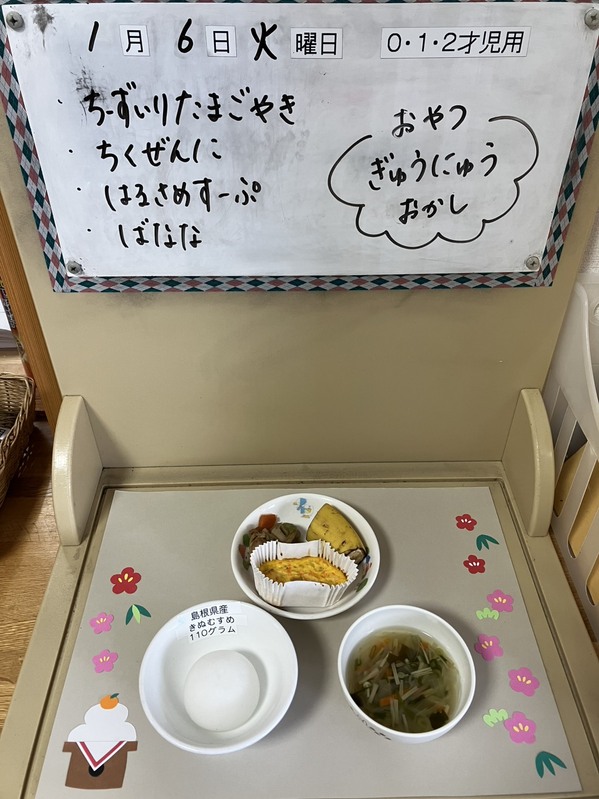 1月6日火曜日 0・1・2才児用
・ちーずいりたまごやき
・ちくぜんに
・はるさめすーぷ
・ばなな
おやつ
ぎゅうにゅう
おかし
島根県産
きぬむすめ
110グラム